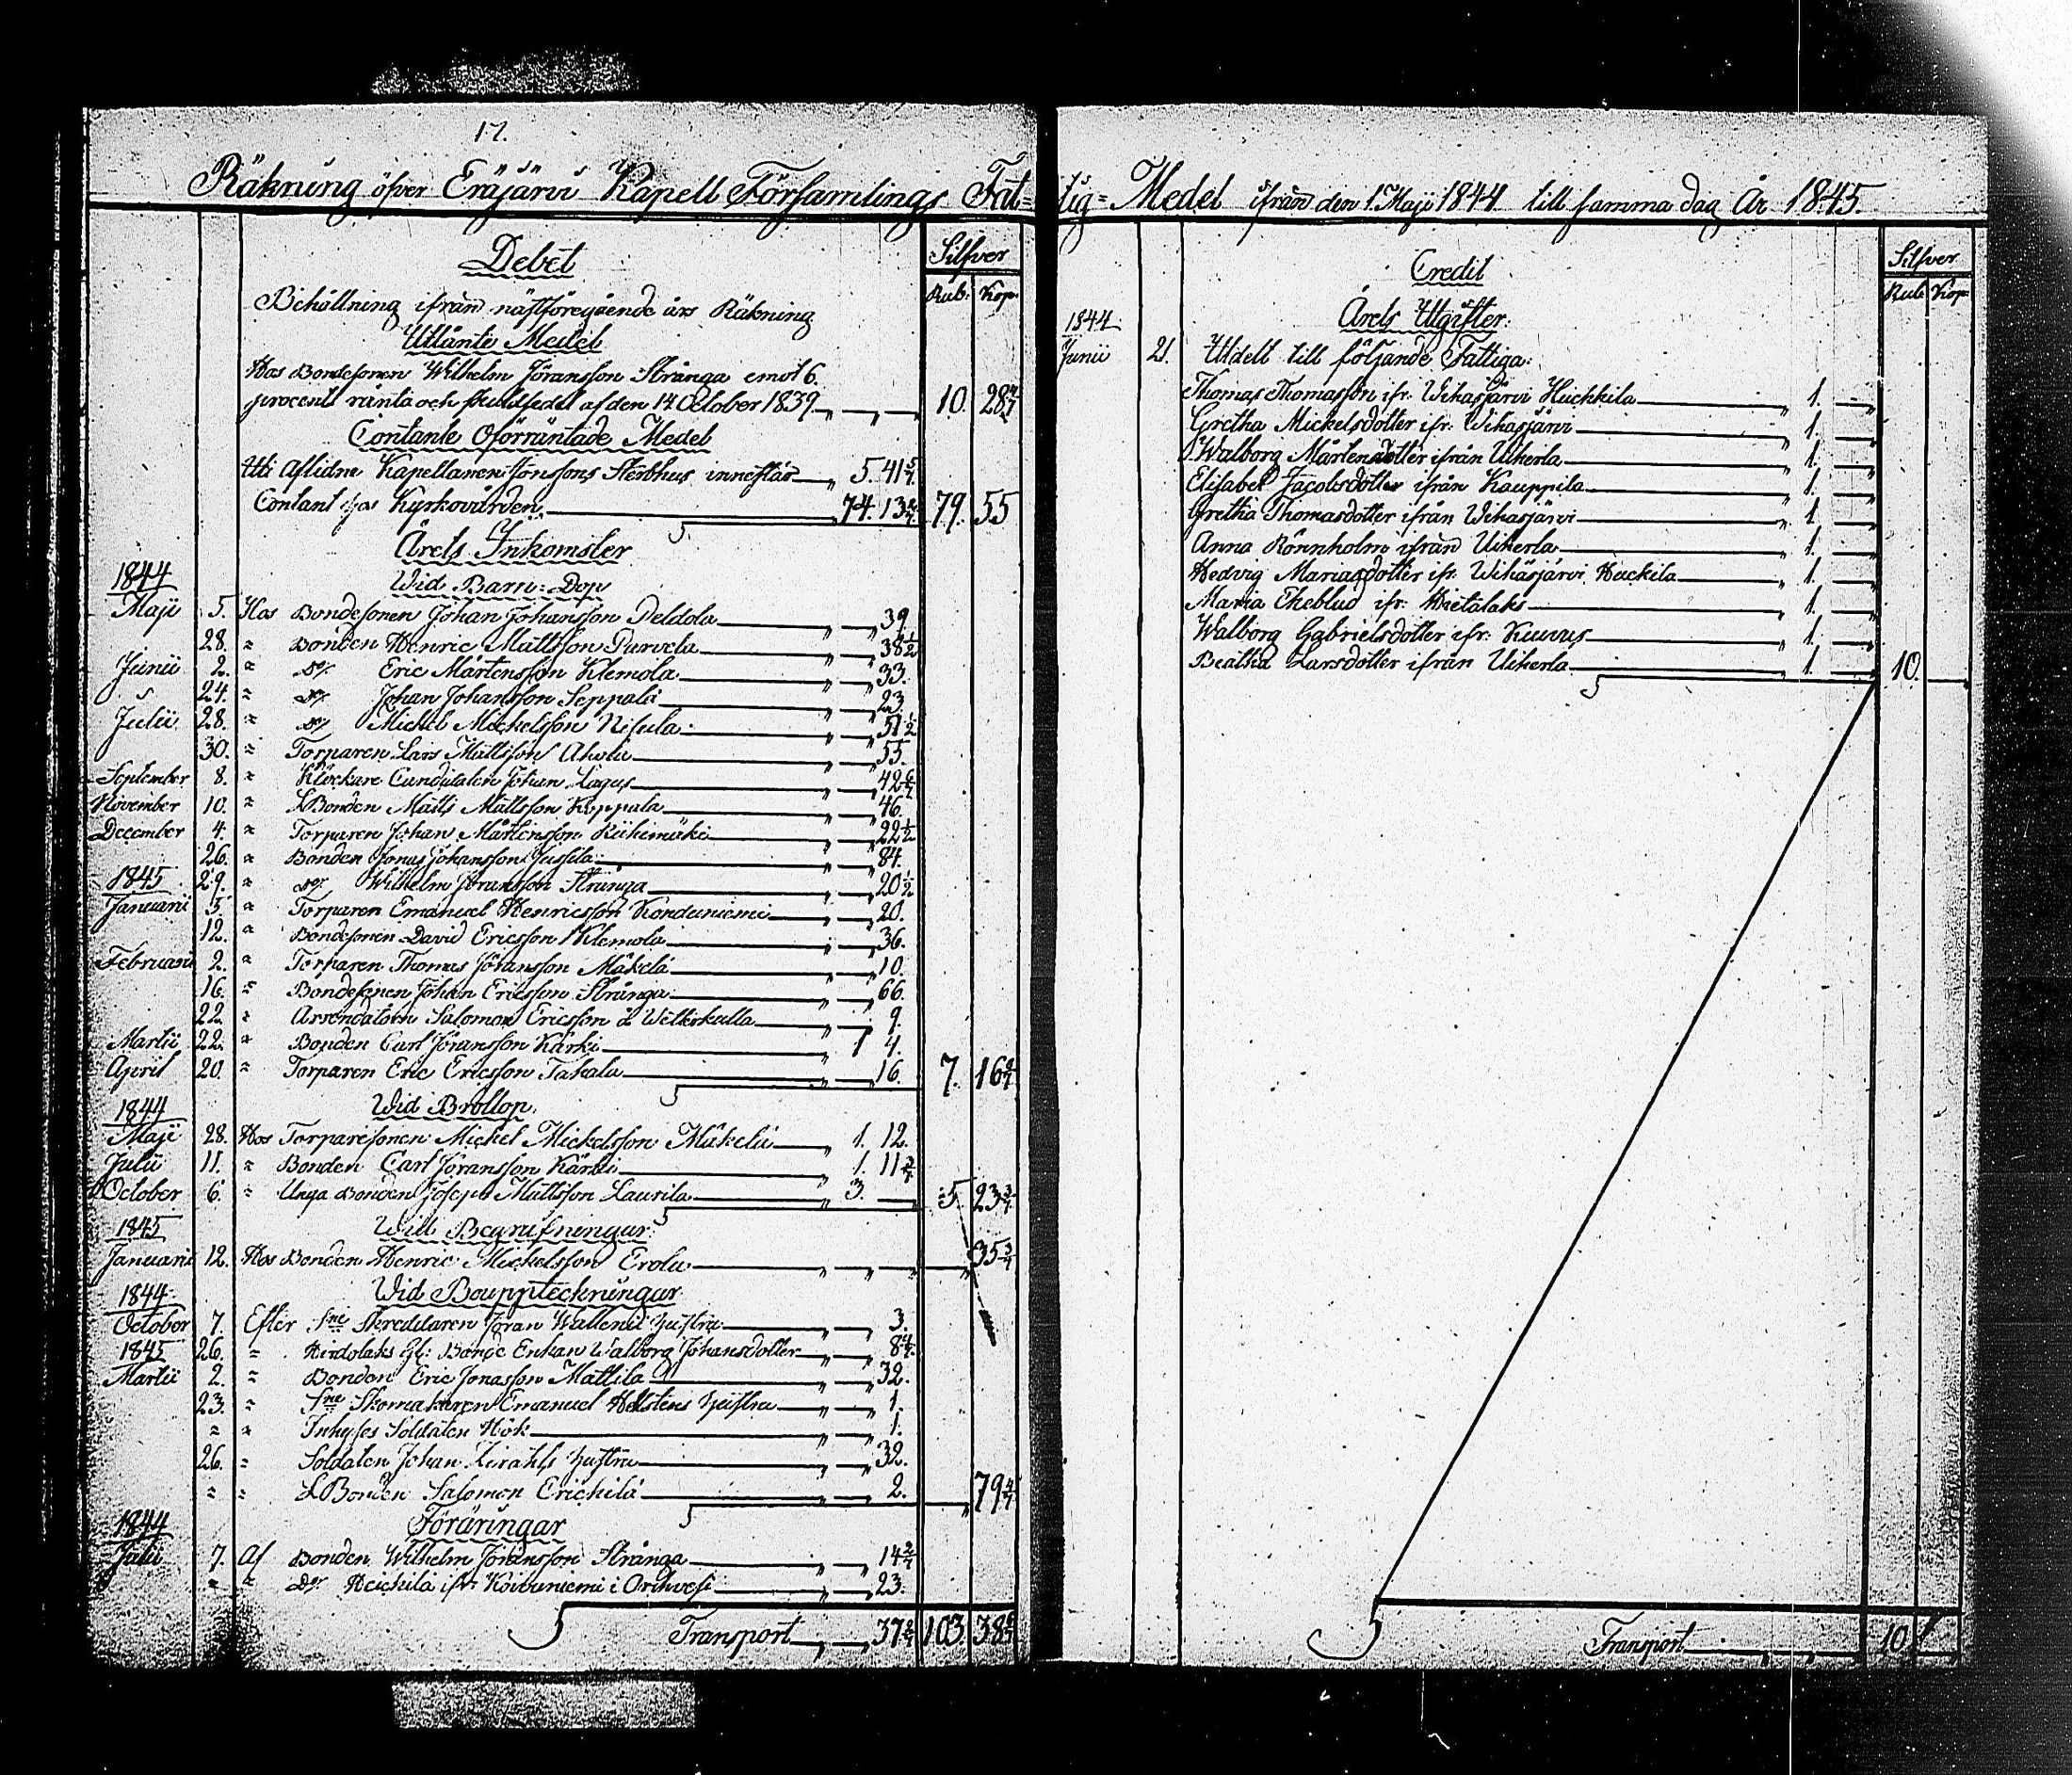 17.
Räkning öfver Eräjärvi Kapell Församlings Fat=
Debet
Silfver
Rub. Kop.
Behållning ifrån nästföregående års Räkning
Utlånte Medel
Hos Bondesonen Wilhelm Jöransson Stränga emot 6.
procent ränta och skuldsedel af den 14 October 1839. 10. 28 4/7
Contante Oförräntade Medel
Uti Aflidne Kapellanen Jonssons Sterbhus innestår 5. 41 5/7
Contant hos Kyrkovärden 74. 13 2/7 79. 55
Årets Inkomster
1844 Wid Barn=Dop
Maji 5. Hos Bondesonen Johan Johansson Deldola 39
28. " Bonden Henric Mattsson Purvela 38 1/2
Junii 2. " Do/ Eric Mårtensson Klemola 33.
24. " Do/ Johan Johansson Seppälä 23.
Julii 28. " Do/ Michel Michelsson Nisula 51 1/2
30. " Torparen Lars Mattsson Ahola 55.
September 8. " Klockare Candidaten Johan Lagus 42 6/7
November 10. " LBonden Matts Mattsson Koppala 46.
December 4. " Torparen Johan Mårtensson Riihimäki 22 1/2
26. " Bonden Jonas Johansson Jussila 84.
1845 29. " Do/ Wilhelm Jöransson Stränga 20 1/2
Januarii 5. " Torparen Emanuel Henricsson Korduniemi 20.
12. " Bondesonen David Ericsson Klemola 36.
Februarii 2. " Torparen Thomas Jöransson Mäkelä 10.
16. " Bondesonen Johan Ericsson Stränga 66.
22. " Arrendatorn Salomon Ericsson å Wetterkulla 9.
Martii 22. " Bonden Carl Jöransson Kärki 1 4.
April 20. " Torparen Eric Ericsson Takala 16. 7. 16 6/7
1844 Wid Bröllop.
Maji 28. Hos Torparesonen Michel Michelsson Mäkelä 1. 12.
Julii 11. " Bonden Carl Jöransson Kärki 1. 11 3/7
October 6. " Unga Bonden Joseph Mattsson Laurila 3. 5. 23 3/7
1845 Wid Begrafningar.
Januarii 12. Hos Bonden Henric Michelsson Erola 35 3/7
1844 Wid Bouppteckningar
October 7. Efter Sne Skreddaren Jöran Wallens hustru 3.
1845 26. " Hirdolaks Gl: Bonde Enkan Walborg Johansdotter 8 4/7
Martii 2. " Bonden Eric Jonasson Mattila 32.
23. " Sne Skomakaren Emanuel Hellstens hustru 1.
" " Inhyses Soldaten Hök 1.
26. " Soldaten Johan hustru 32.
" " LBonden Salomon Erickilä 2. 79 4/7
1844 Föräringar
Julii 7. Af Bonden Wilhelm Jöransson Stränga 14 2/7
" " Do/ Heickilä ifr: Koivuniemi i Orihvesi 23.
Transport 37 2/7 103. 38 6/7
tig= Medel ifrån den 1. Maji 1844 till samma dag År 1845.
Credit
Silfver
Rub Kop
Årets Utgifter:
1844
Junii 21. Utdelt till följande Fattiga:
Thomas Thomasson ifr. Wihasjärvi Huchkila 1.
Gretha Mickelsdotter ifr: Wihasjärvi 1.
Walborg Mårtensdotter ifrån Uiherla 1.
Elisabet Jacobsdotter ifrån Kauppila 1.
Gretha Thomasdotter ifrån Wihasjärvi 1.
Anna Rönnholm ifrån Uiherla 1.
Hedvig Mariasdotter ifr. Wihäsjärvi Huckila 1.
Maria Theblud ifr: Hietalaks 1.
Walborg Gabrielsdotter ifr: Kuuvus 1.
Beatha Larsdotter ifrån Uiherla 1. 10.
Transport 10